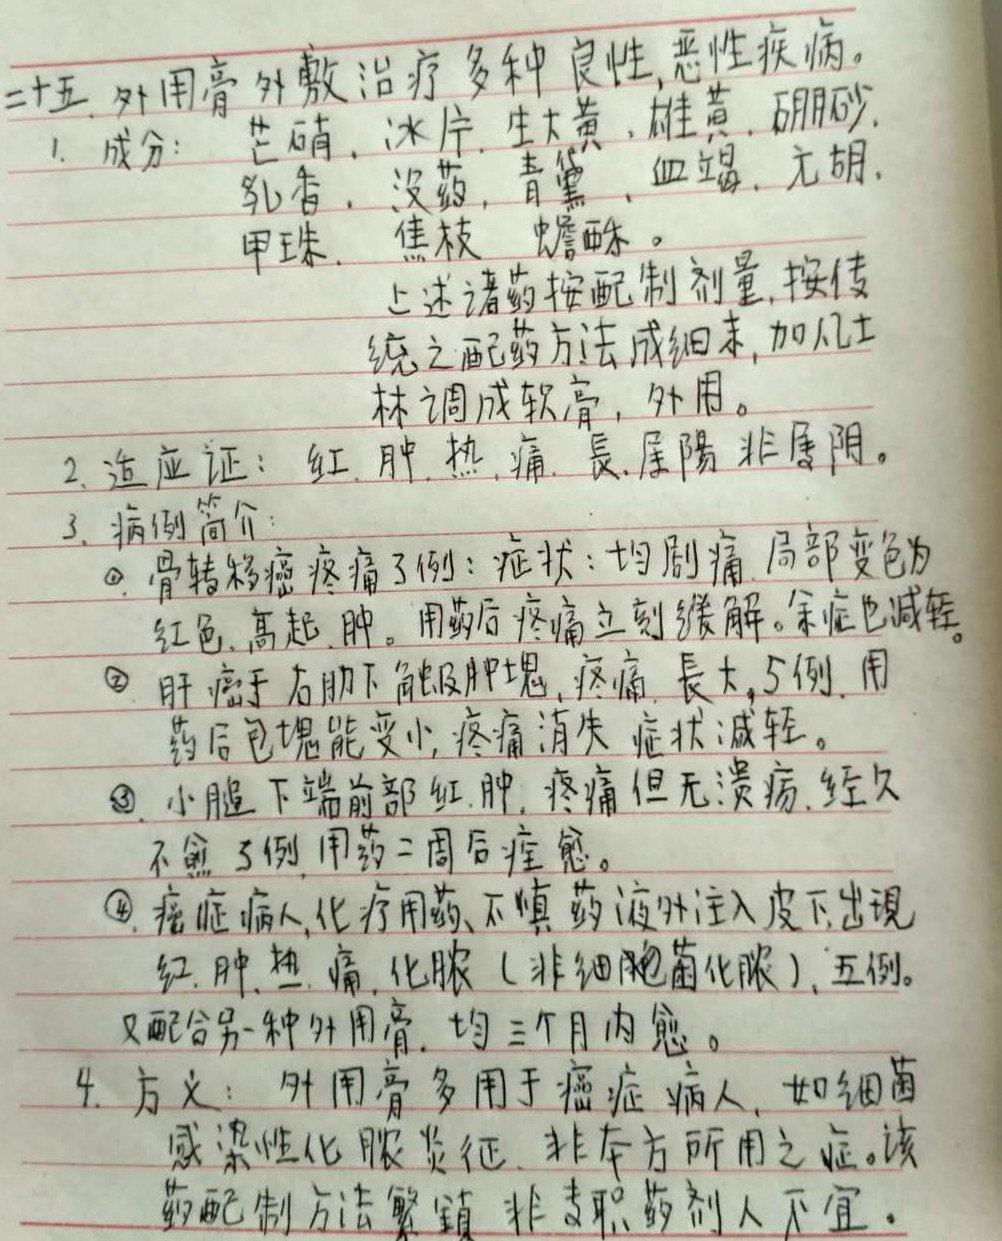 二十五、外用膏外敷治疗多种良性,恶性疾病。
1. 成分: 芒硝、冰片、生大黄、雄黄、硼砂、
乳香、没药、青黛、血竭、元胡、
甲珠、焦枝 蟾酥。
上述诸药按配制剂量,按传
统之配药方法成细末,加凡士
林调成软膏,外用。
2. 适应证: 红、肿、热、痛、長、属陽非属阴。
3. 病例简介:
①. 骨转移癌疼痛3例:症状:均剧痛、局部变色为
红色、高起、肿。用药后疼痛立刻缓解。余症也减轻。
② 肝癌于右肋下触及肿塊、疼痛、長大,5例、用
药后包塊能变小,疼痛消失 症状减轻。
③. 小腿下端前部红、肿、疼痛但无溃疡、经久
不愈 5例、用药二周后痊愈。
④. 癌症病人,化疗用药、不慎药液外注入皮下、出現
红、肿、热、痛、化脓(非细胞菌化脓)、五例。
又配合另一种外用膏、均三个月内愈。
4. 方义: 外用膏多用于癌症病人、如细菌
感染性化脓炎征、非本方所用之症。该
药配制方法繁鎖 非专职药剂人不宜。